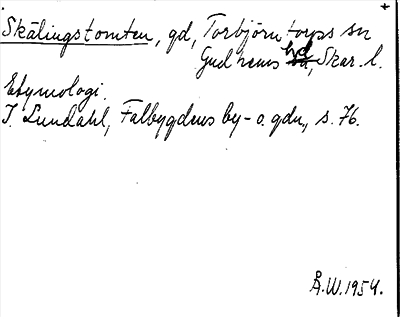 Skålingstomten, gd, Torbjörntorps sn
Gudhems hd, Skar. l.
Etymologi.
I. Lundahl, Falbygdens by- o. gdn, s. 76.
Å.W. 1954.